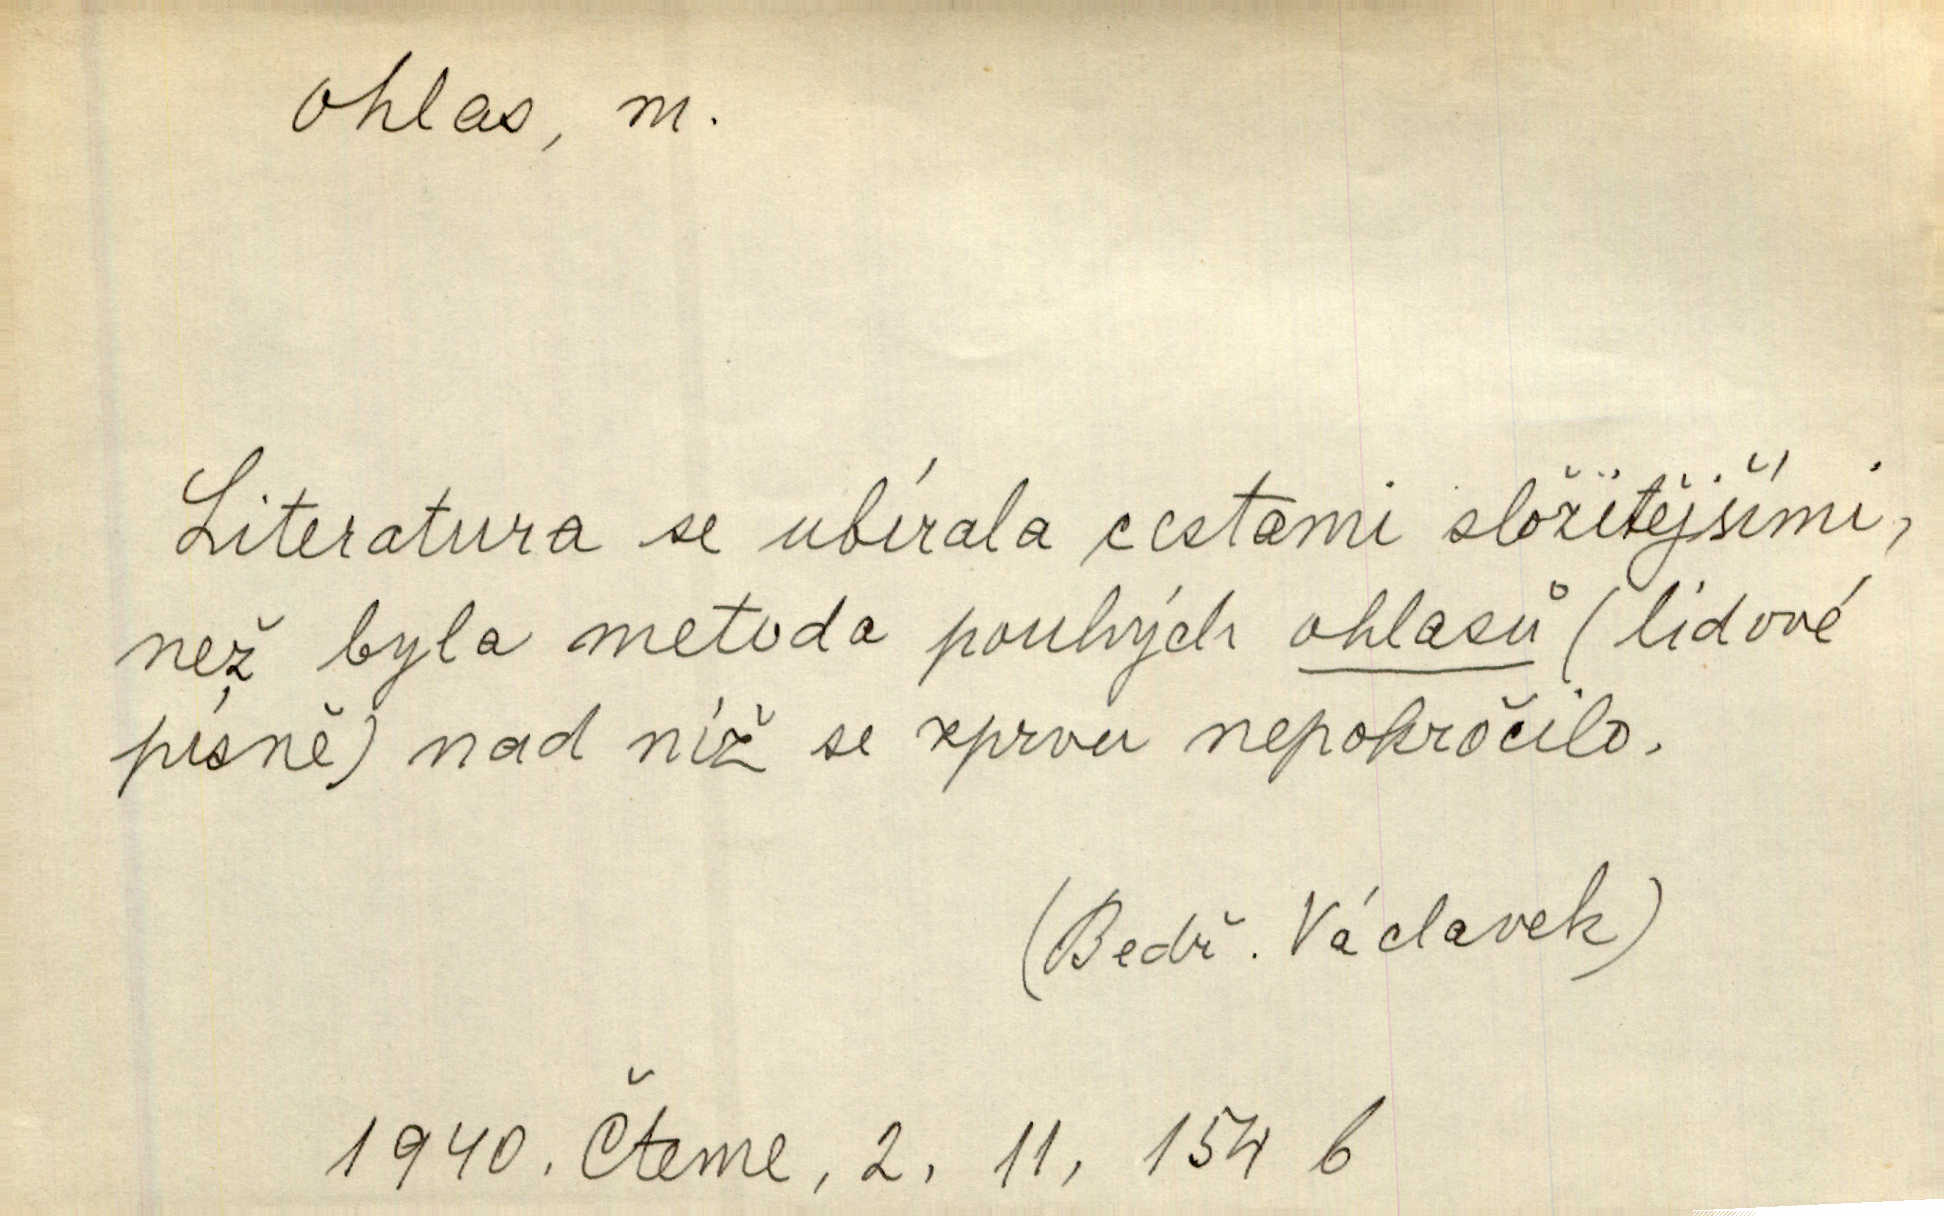 ohlas, m.
Literatura se ubírala cestami složitějšími,
než byla metoda pouhých ohlasů (lidové
písně) nad níž se zprvu nepokročilo.
(Bedř. Václavek)
1940. Čteme, 2. 11, 154 b